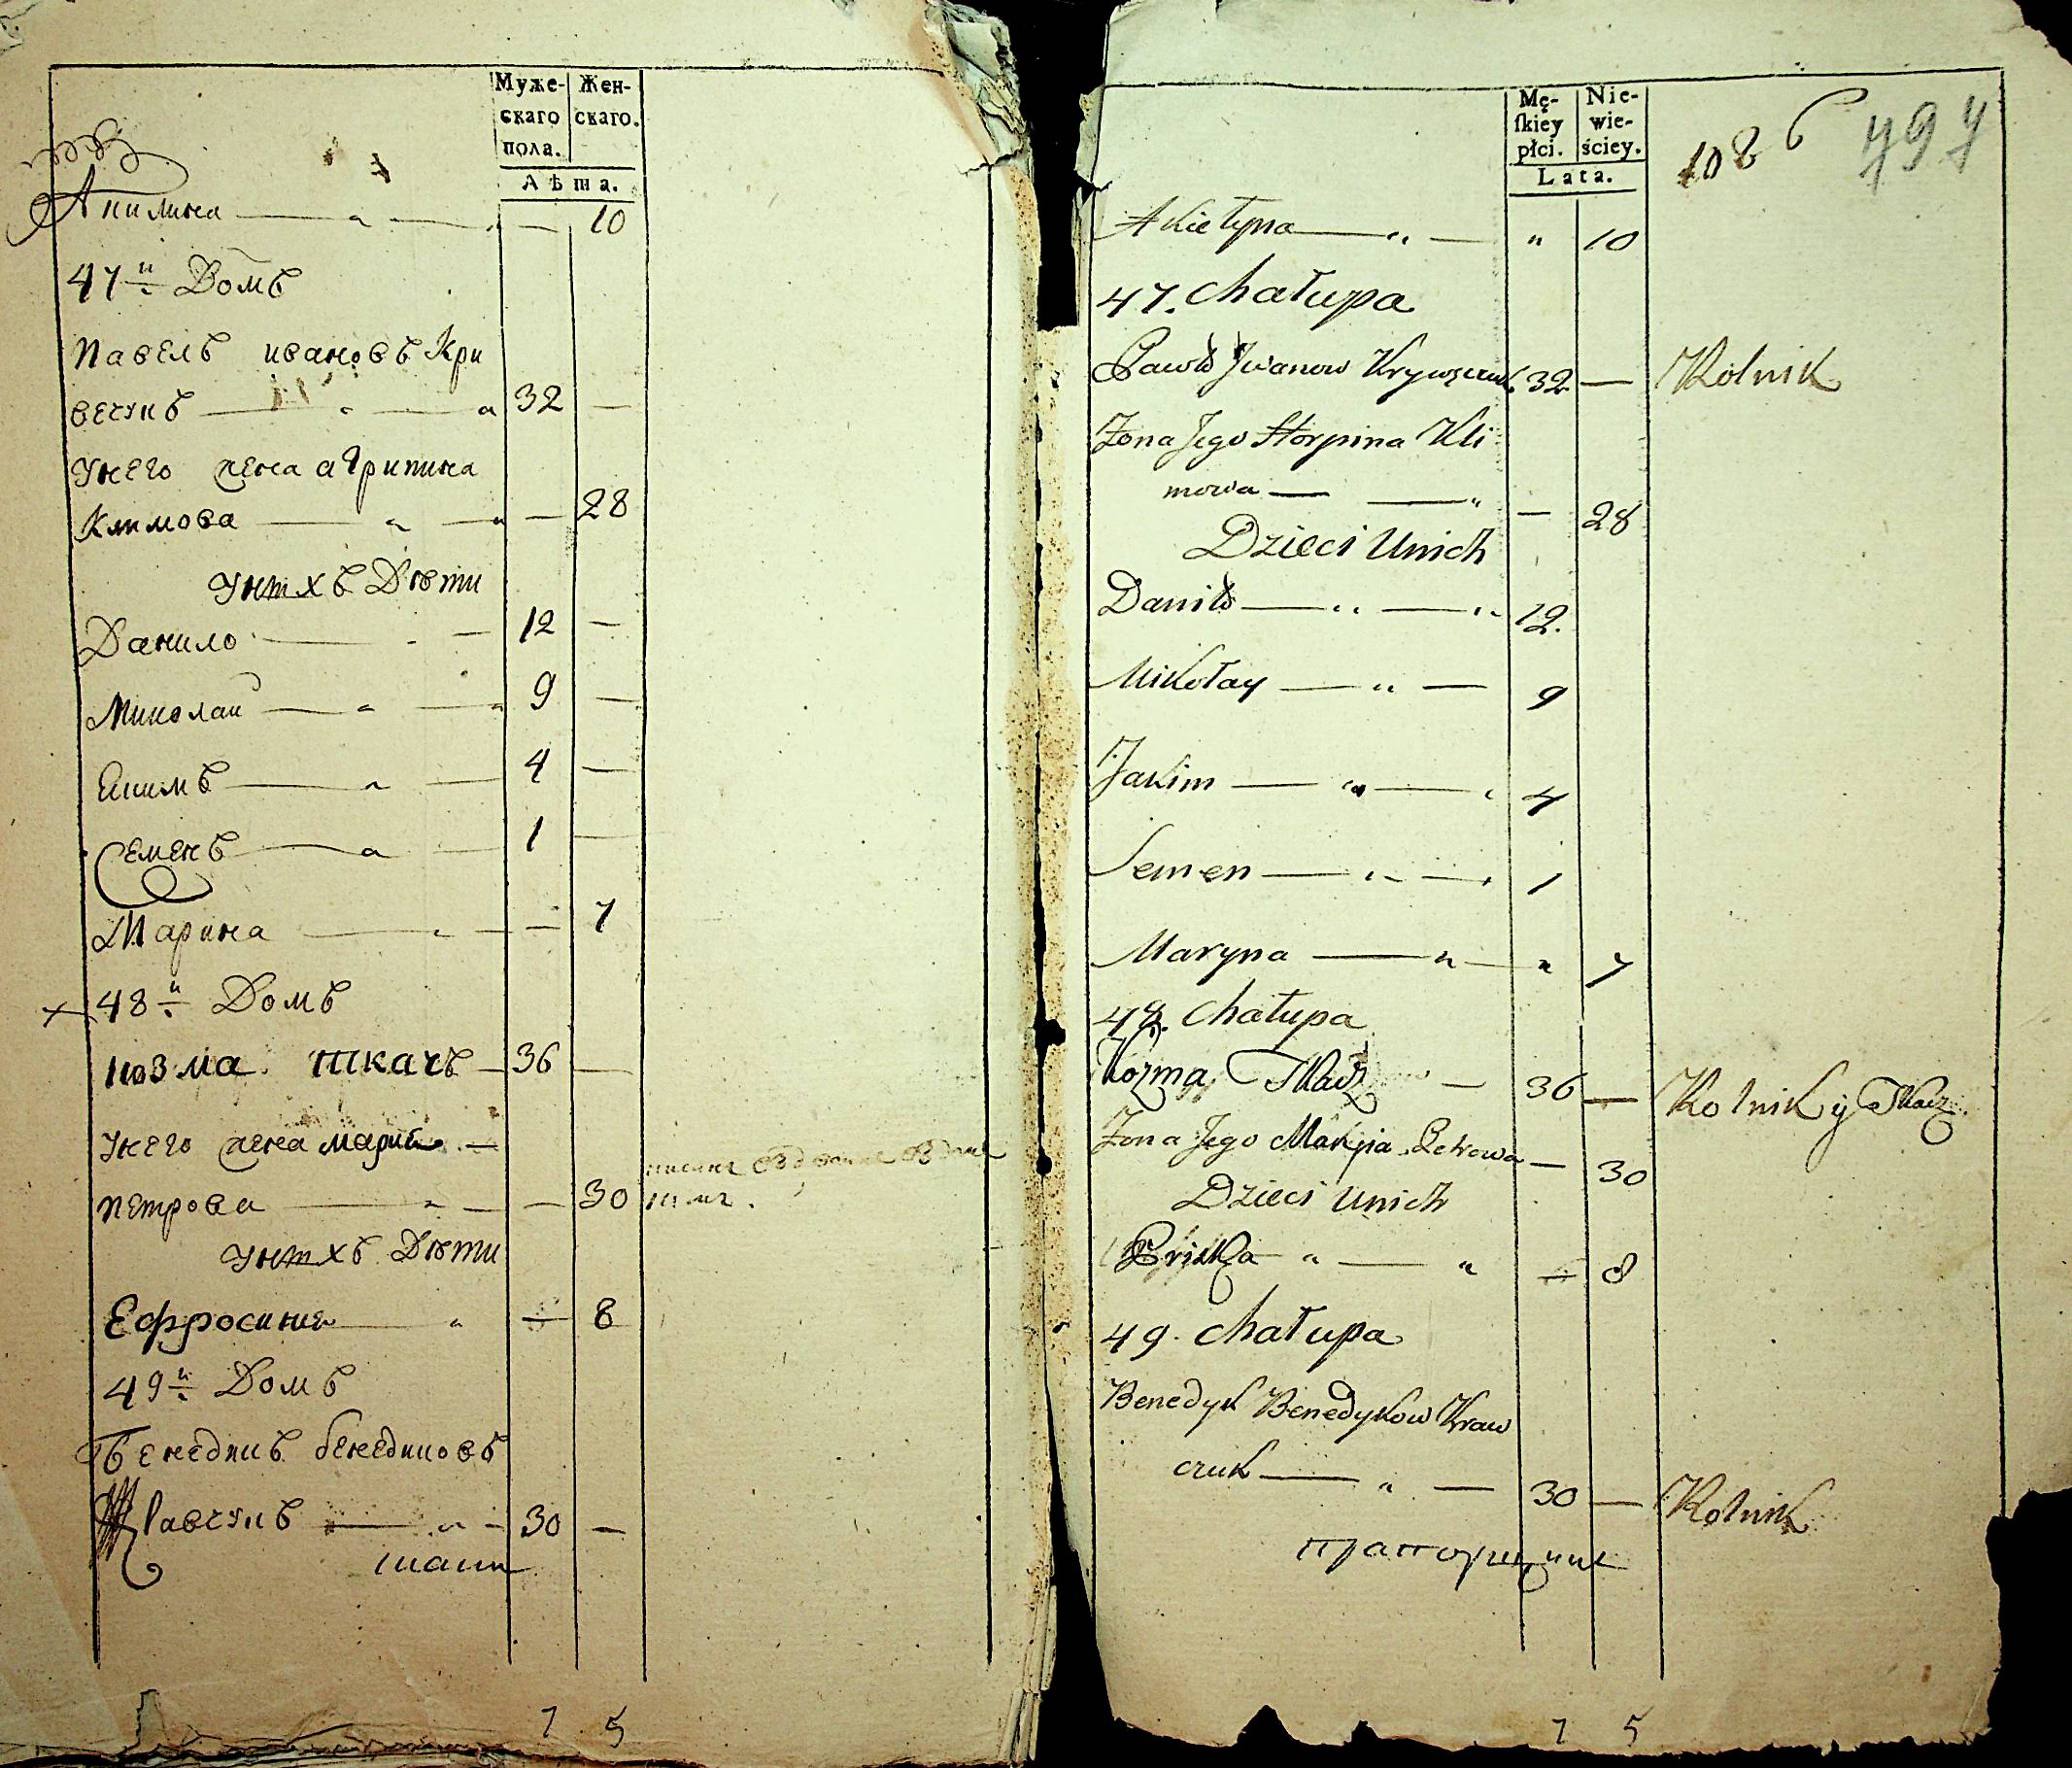 Муже-
скаго
пола.
Жен-
скаго.
Лѣта.
Акилина — 10
47й Домъ
Павелъ ивановъ Кри
вечукъ 32 —
Унего жена агрипина
Климова — 28
Унихъ Дѣти
Данило 12 —
Миколай 9 —
Якимъ 4 —
Семенъ 1 —
Марина — 7
48й Домъ
козма ткачъ 36 —
Унего жена мария
петрова — 30
Унихъ Дѣти
Ефросиния — 8
49й Домъ
Бенедикъ бенедиковъ
Кравчукъ 30 —
7 5
Mę-
ſkiey
płci.
Nie-
wie-
ściey.
Lata.
108 6 497
Akielyna " 10
47. Chałupa
Pawło Jwanow Krywęczuk 32 — Rolnik
Żona Jego Horpina Kli
mowa — 28
Dzieci Unich
Daniło 12.
Mikołay 9
Jakim 4
Semen 1
Maryna " 7
48. Chałupa
Kozma Tkacz 36 — Rolnik y Tkacz
Żona Jego Maryia Petrowa — 30
Dzieci Unich
Pryska — 8
49. Chałupa
Benedyk Benedykow Kraw
czuk 30 — Rolnik
прапорщикъ
7 5